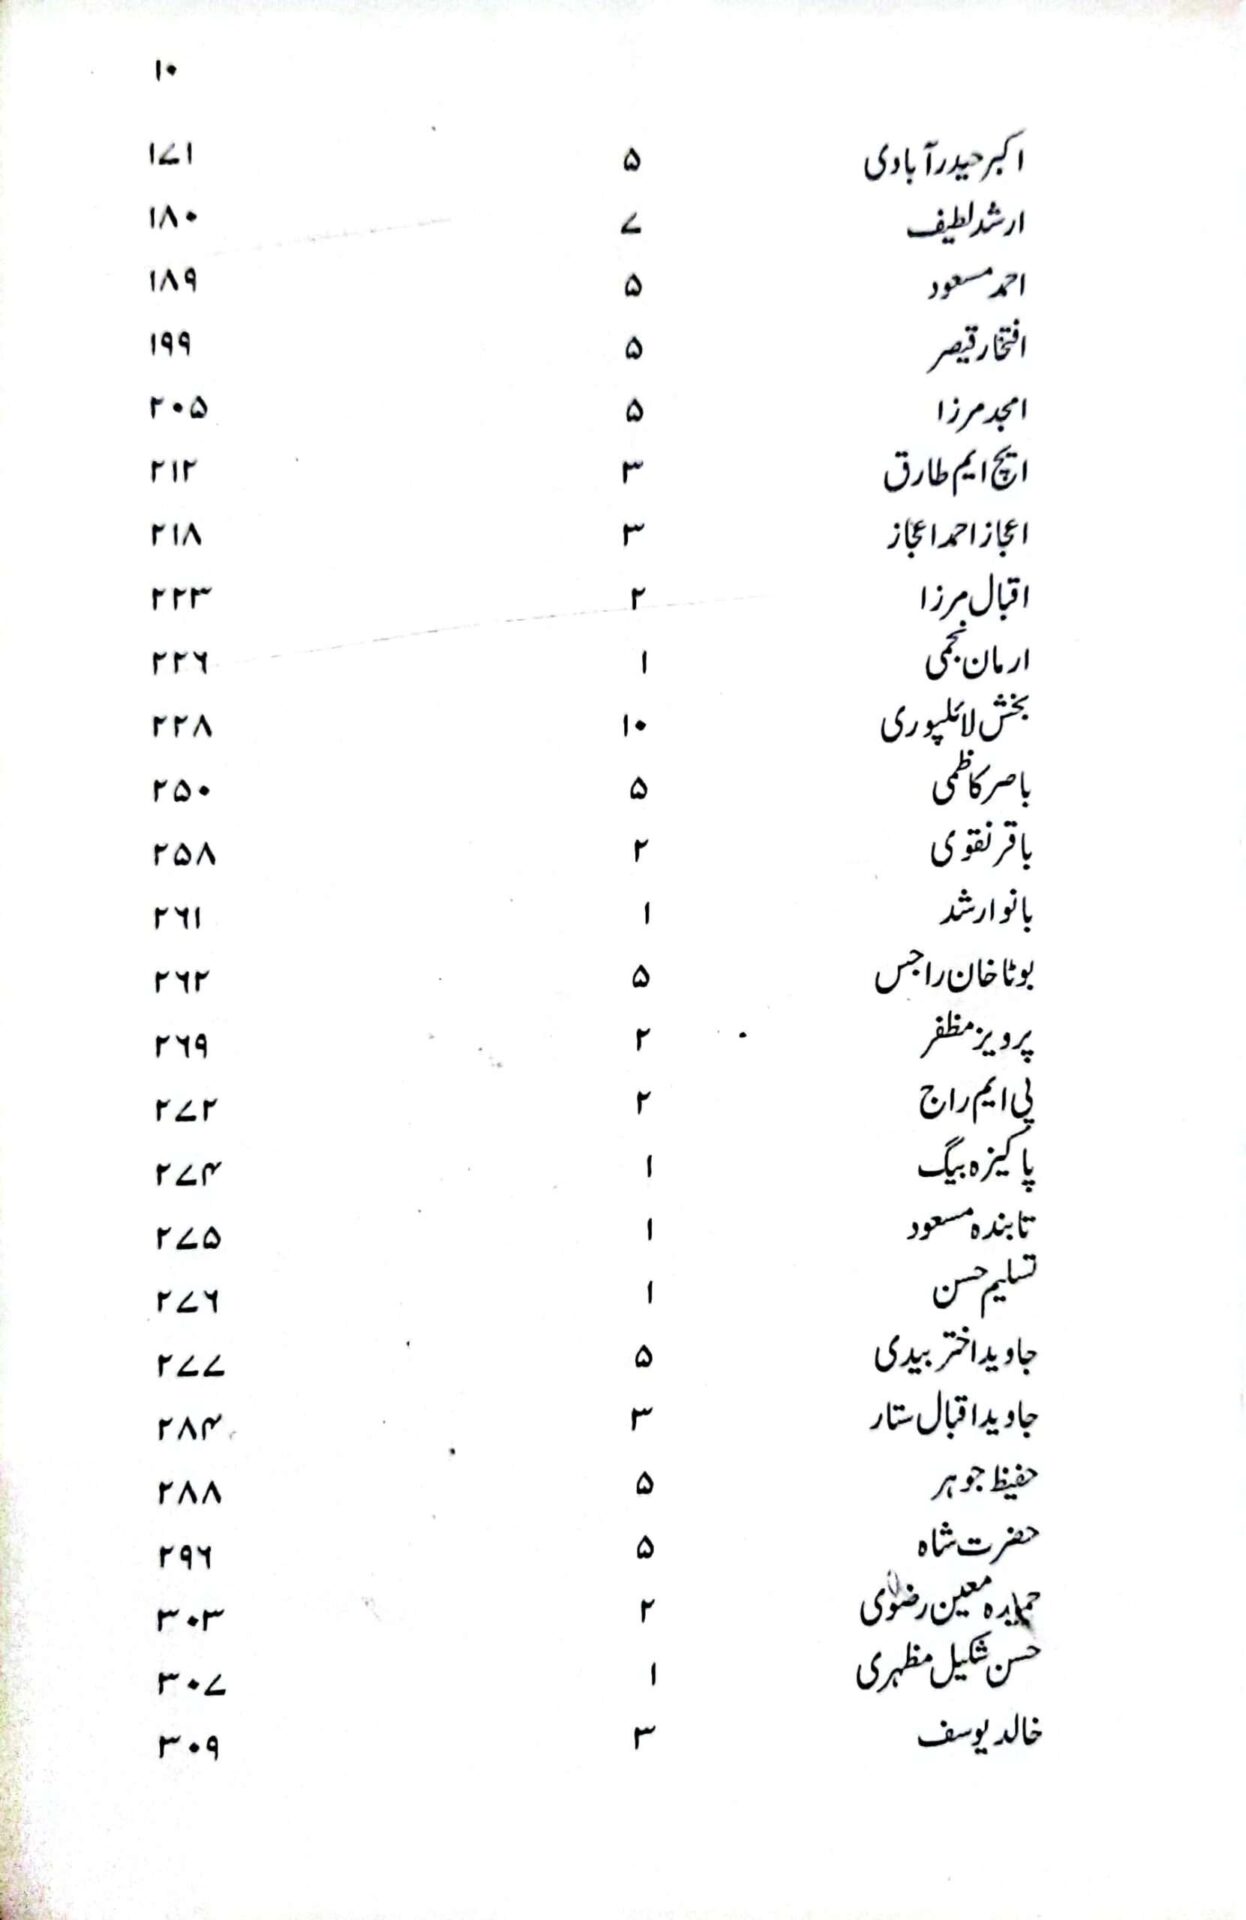 ۱۰
اکبر حیدرآبادی ۵ ۱۷۱
ارشد لطیف ۷ ۱۸۰
احمد مسعود ۵ ۱۸۹
افتخار قیصر ۵ ۱۹۹
امجد مرزا ۵ ۲۰۵
ایچ ایم طارق ۳ ۲۱۲
اعجاز احمد اعجاز ۳ ۲۱۸
اقبال مرزا ۲ ۲۲۳
ارمان نجمی ۱ ۲۲۶
بخش لائلپوری ۱۰ ۲۲۸
باصر کاظمی ۵ ۲۵۰
باقر نقوی ۲ ۲۵۸
بانو ارشد ۱ ۲۶۱
بوٹا خان راجس ۵ ۲۶۲
پرویز مظفر ۲ ۲۶۹
پی ایم راج ۲ ۲۷۲
پاکیزہ بیگ ۱ ۲۷۴
تابندہ مسعود ۱ ۲۷۵
تسلیم حسن ۱ ۲۷۶
جاوید اختر بیدی ۵ ۲۷۷
جاوید اقبال ستار ۳ ۲۸۴
حفیظ جوہر ۵ ۲۸۸
حضرت شاہ ۵ ۲۹۶
حمیدہ معین رضوی ۲ ۳۰۳
حسن شکیل مظہری ۱ ۳۰۷
خالد یوسف ۳ ۳۰۹